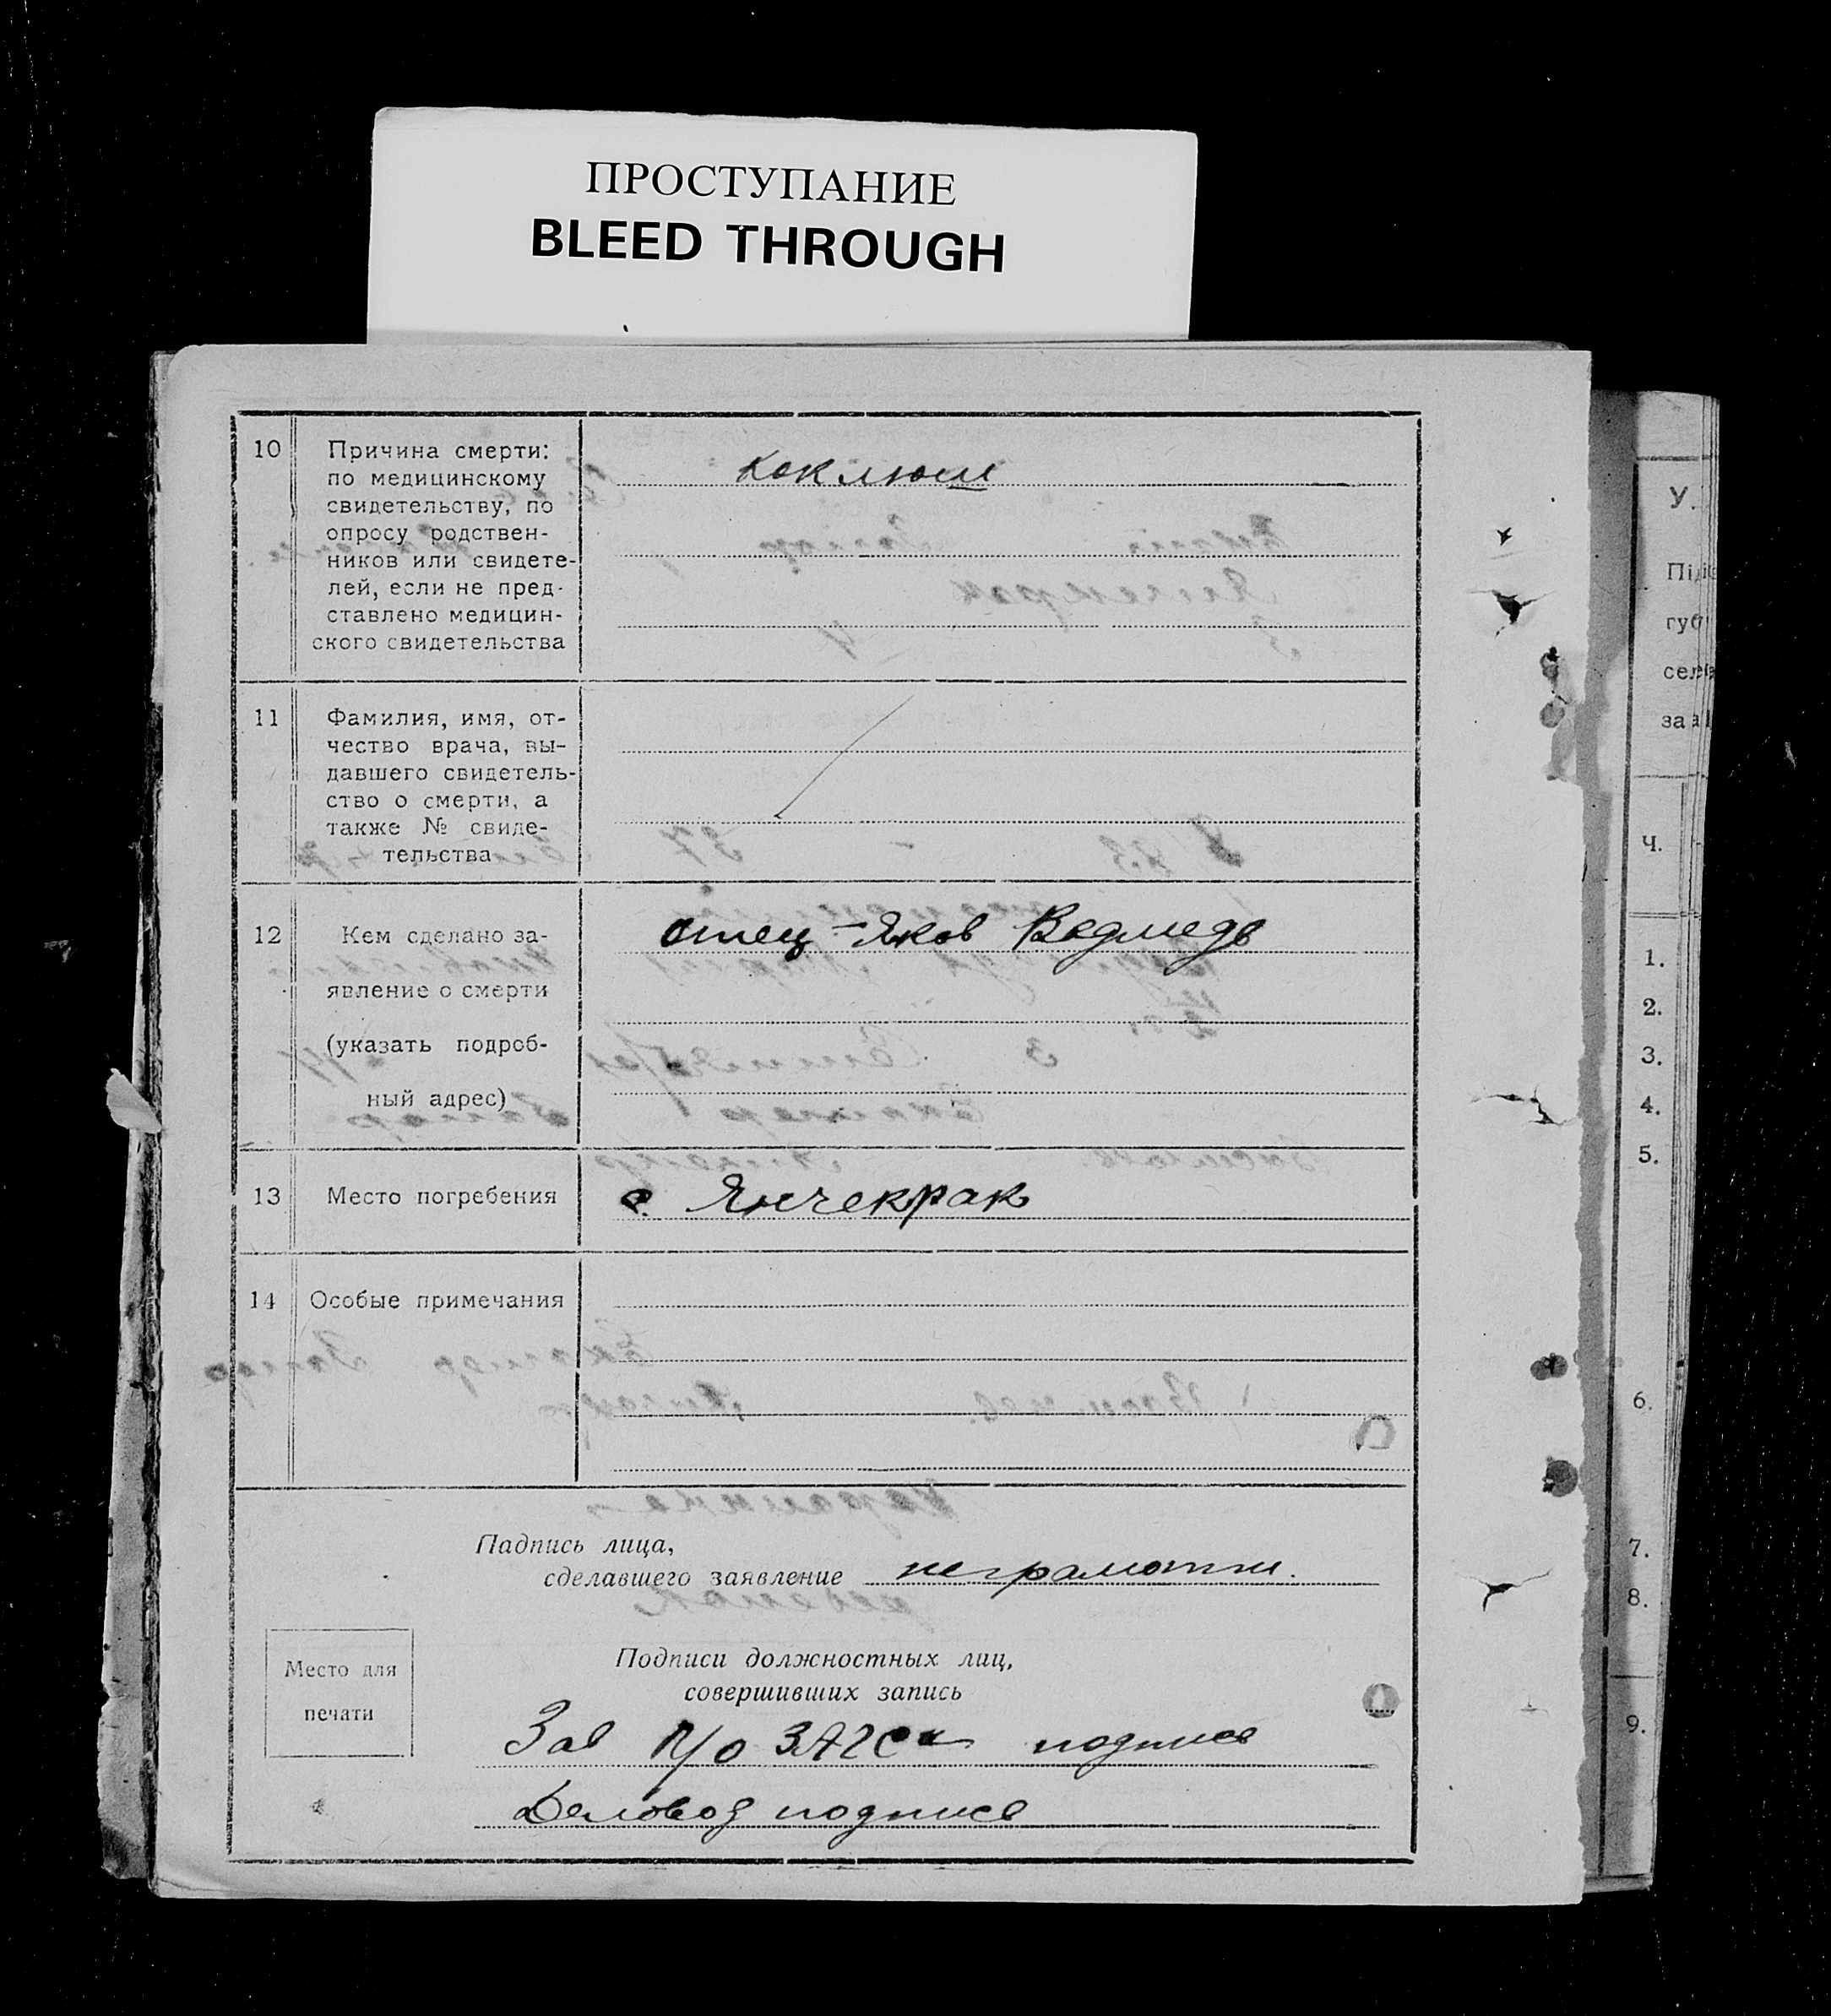 ПРОСТУПАНИЕ
BLEED THROUGH
10
Причина смерти:
по медицинскому
свидетельству, по
опросу родствен-
ников или свидете-
лей, если не пред-
ставлено медицин-
ского свидетельства
коклюш
11
Фамилия, имя, от-
чество врача, вы-
давшего свидетель-
ство о смерти, а
также № свиде-
тельства
12
Кем сделано за-
явление о смерти
(указать подроб-
ный адрес)
отец - Яков Ведмедь
13
Место погребения
с. Янчекрак
14
Особые примечания
Падпись лица,
сделавшего заявление неграмотн.
Место для
печати
Подписи должностных лиц,
совершивших запись
Зав П/о ЗАГСа подпись
Деловод подпись
У.
Підіс
губ
селе
за а
Ч.
1.
2.
3.
4.
5.
6.
7.
8.
9.